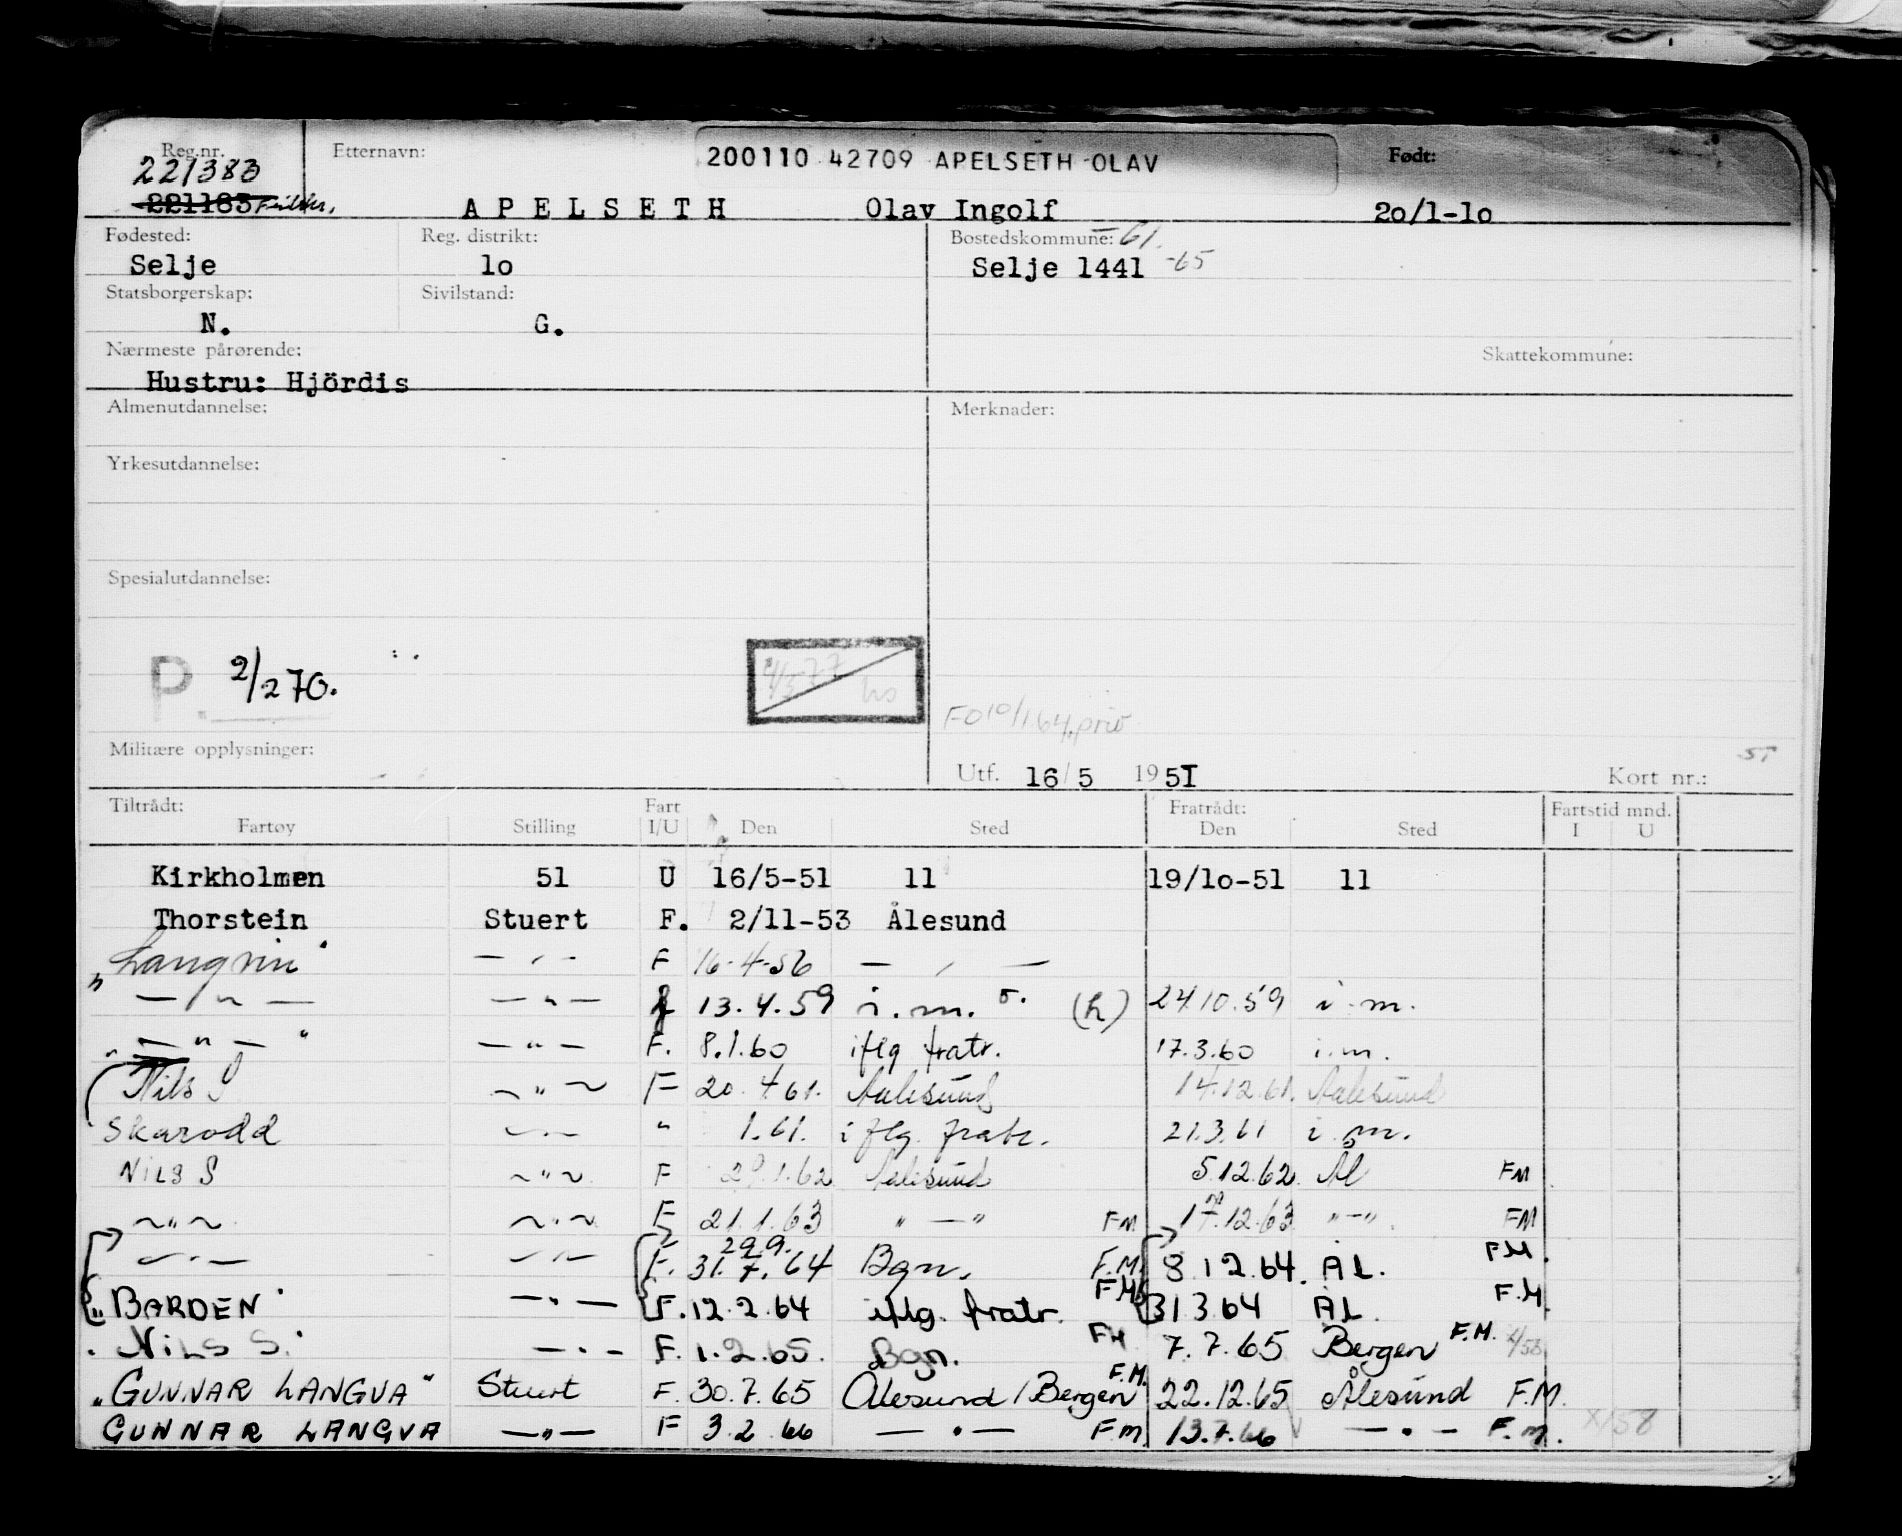 Reg.nr. Etternavn: 200110 42709 APELSETH OLAV Født:
221383
221183 APELSETH Olav Ingolf 2o/1-1o
Fødested: Reg. distrikt: Bostedskommune: -61.
Selje 1o Selje 1441 -65
Statsborgerskap: Sivilstand:
N. G.
Nærmeste pårørende: Skattekommune:
Hustru: Hjördis
Almenutdannelse: Merknader:
Yrkesutdannelse:
Spesialutdannelse:
P 2/270.
4/5 77
FO 10/1.64, priv
Militære opplysninger:
Utf. 16/5 1951 Kort nr.:
Tiltrådt: Fart Fratrådt: Fartstid mnd.
Fartøy Stilling I/U Den Sted Den Sted I U
Kirkholmen 51 U 16/5-51 11 19/1o-51 11
Thorstein Stuert F. 2/11-53 Ålesund
"Langvin" — " — F 16-4-56 — " —
— " — — " — F 13.4.59 i.m. (h) 24.10.59 i.m.
" — " — " — " — F. 8.1.60 iflg fratr. 17.3.60 i.m.
Nils S — " — F 20.4.61. Aalesund 14.12.61. Aalesund
Skarodd — " — " 1.61. iflg. fratr. 21.3.61 i.m.
NILS S — " — F 29.1.62 Aalesund 5.12.62. Ål FM
— " — — " — F 21.1.63 " — " FM 17.12.63 " — " FM
29.9.
— " — — " — F. 31.7.64 Bgn. F.M. 8.12.64. ÅL. FM.
"BARDEN" — " — F. 12.2.64 iflg. fratr. FM 31.3.64 ÅL. F.M.
"NILS S." — " — F. 1.2.65. Bgn. FM 7.7.65 Bergen F.M.
"GUNNAR LANGVA" Stuert F. 30.7.65 Ålesund/Bergen F.M. 22.12.65 Ålesund F.M.
GUNNAR LANGVA — " — F 3.2.66 — " — F.M. 13.7.66 — " — F.M. X/58